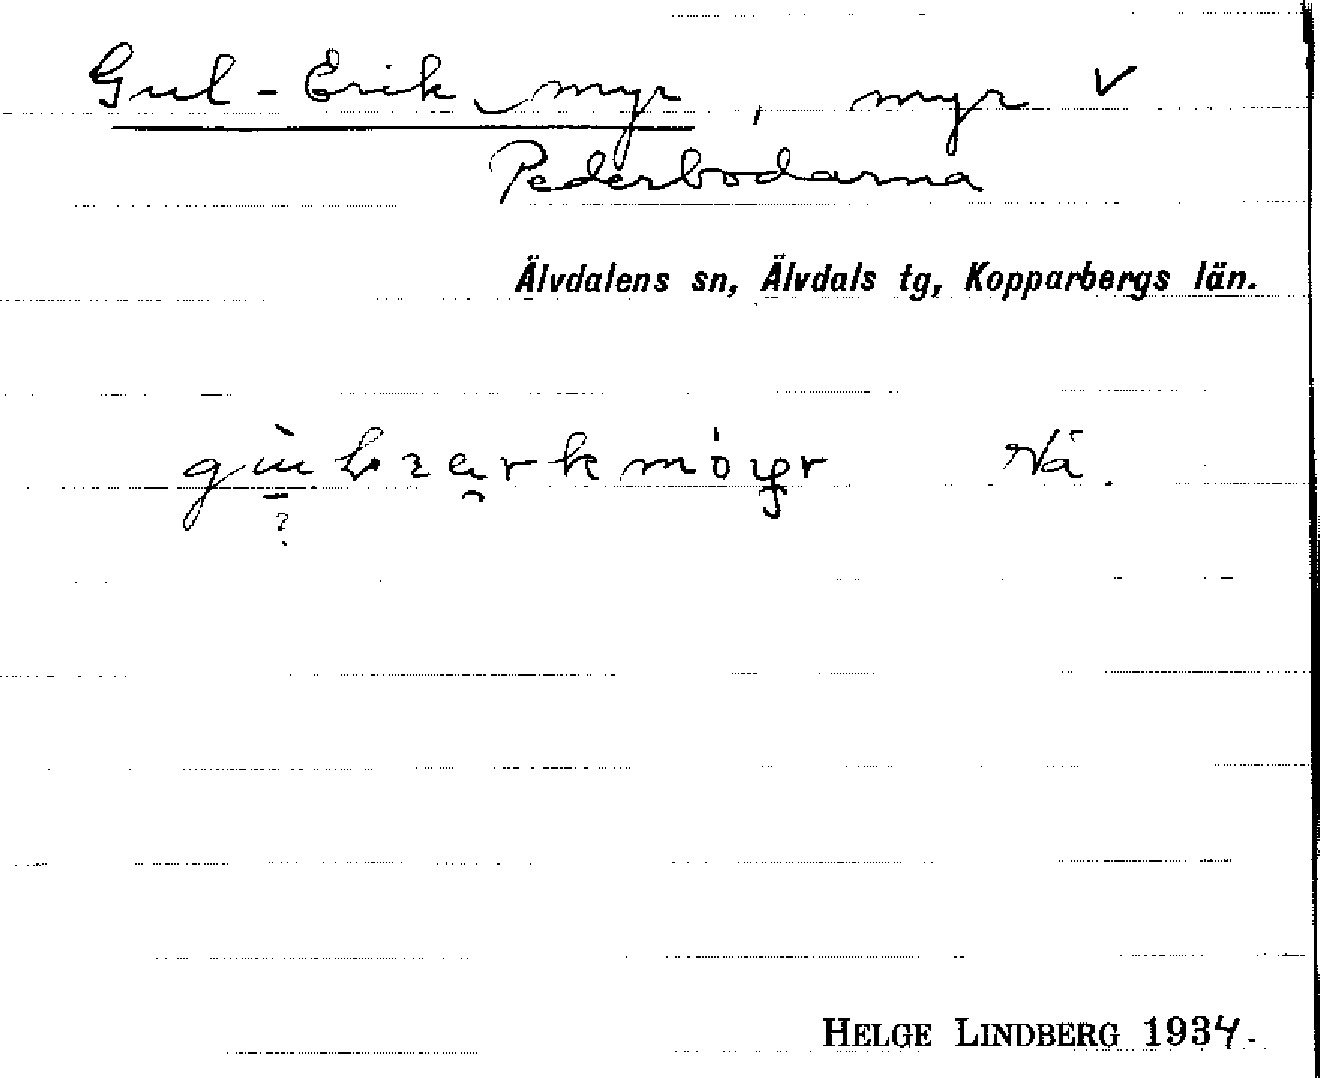 Gul-Erik myr, myr ✓
Pederbodarna
Älvdalens sn, Älvdals tg, Kopparbergs län.
Vå.
?
HELGE LINDBERG 1934.